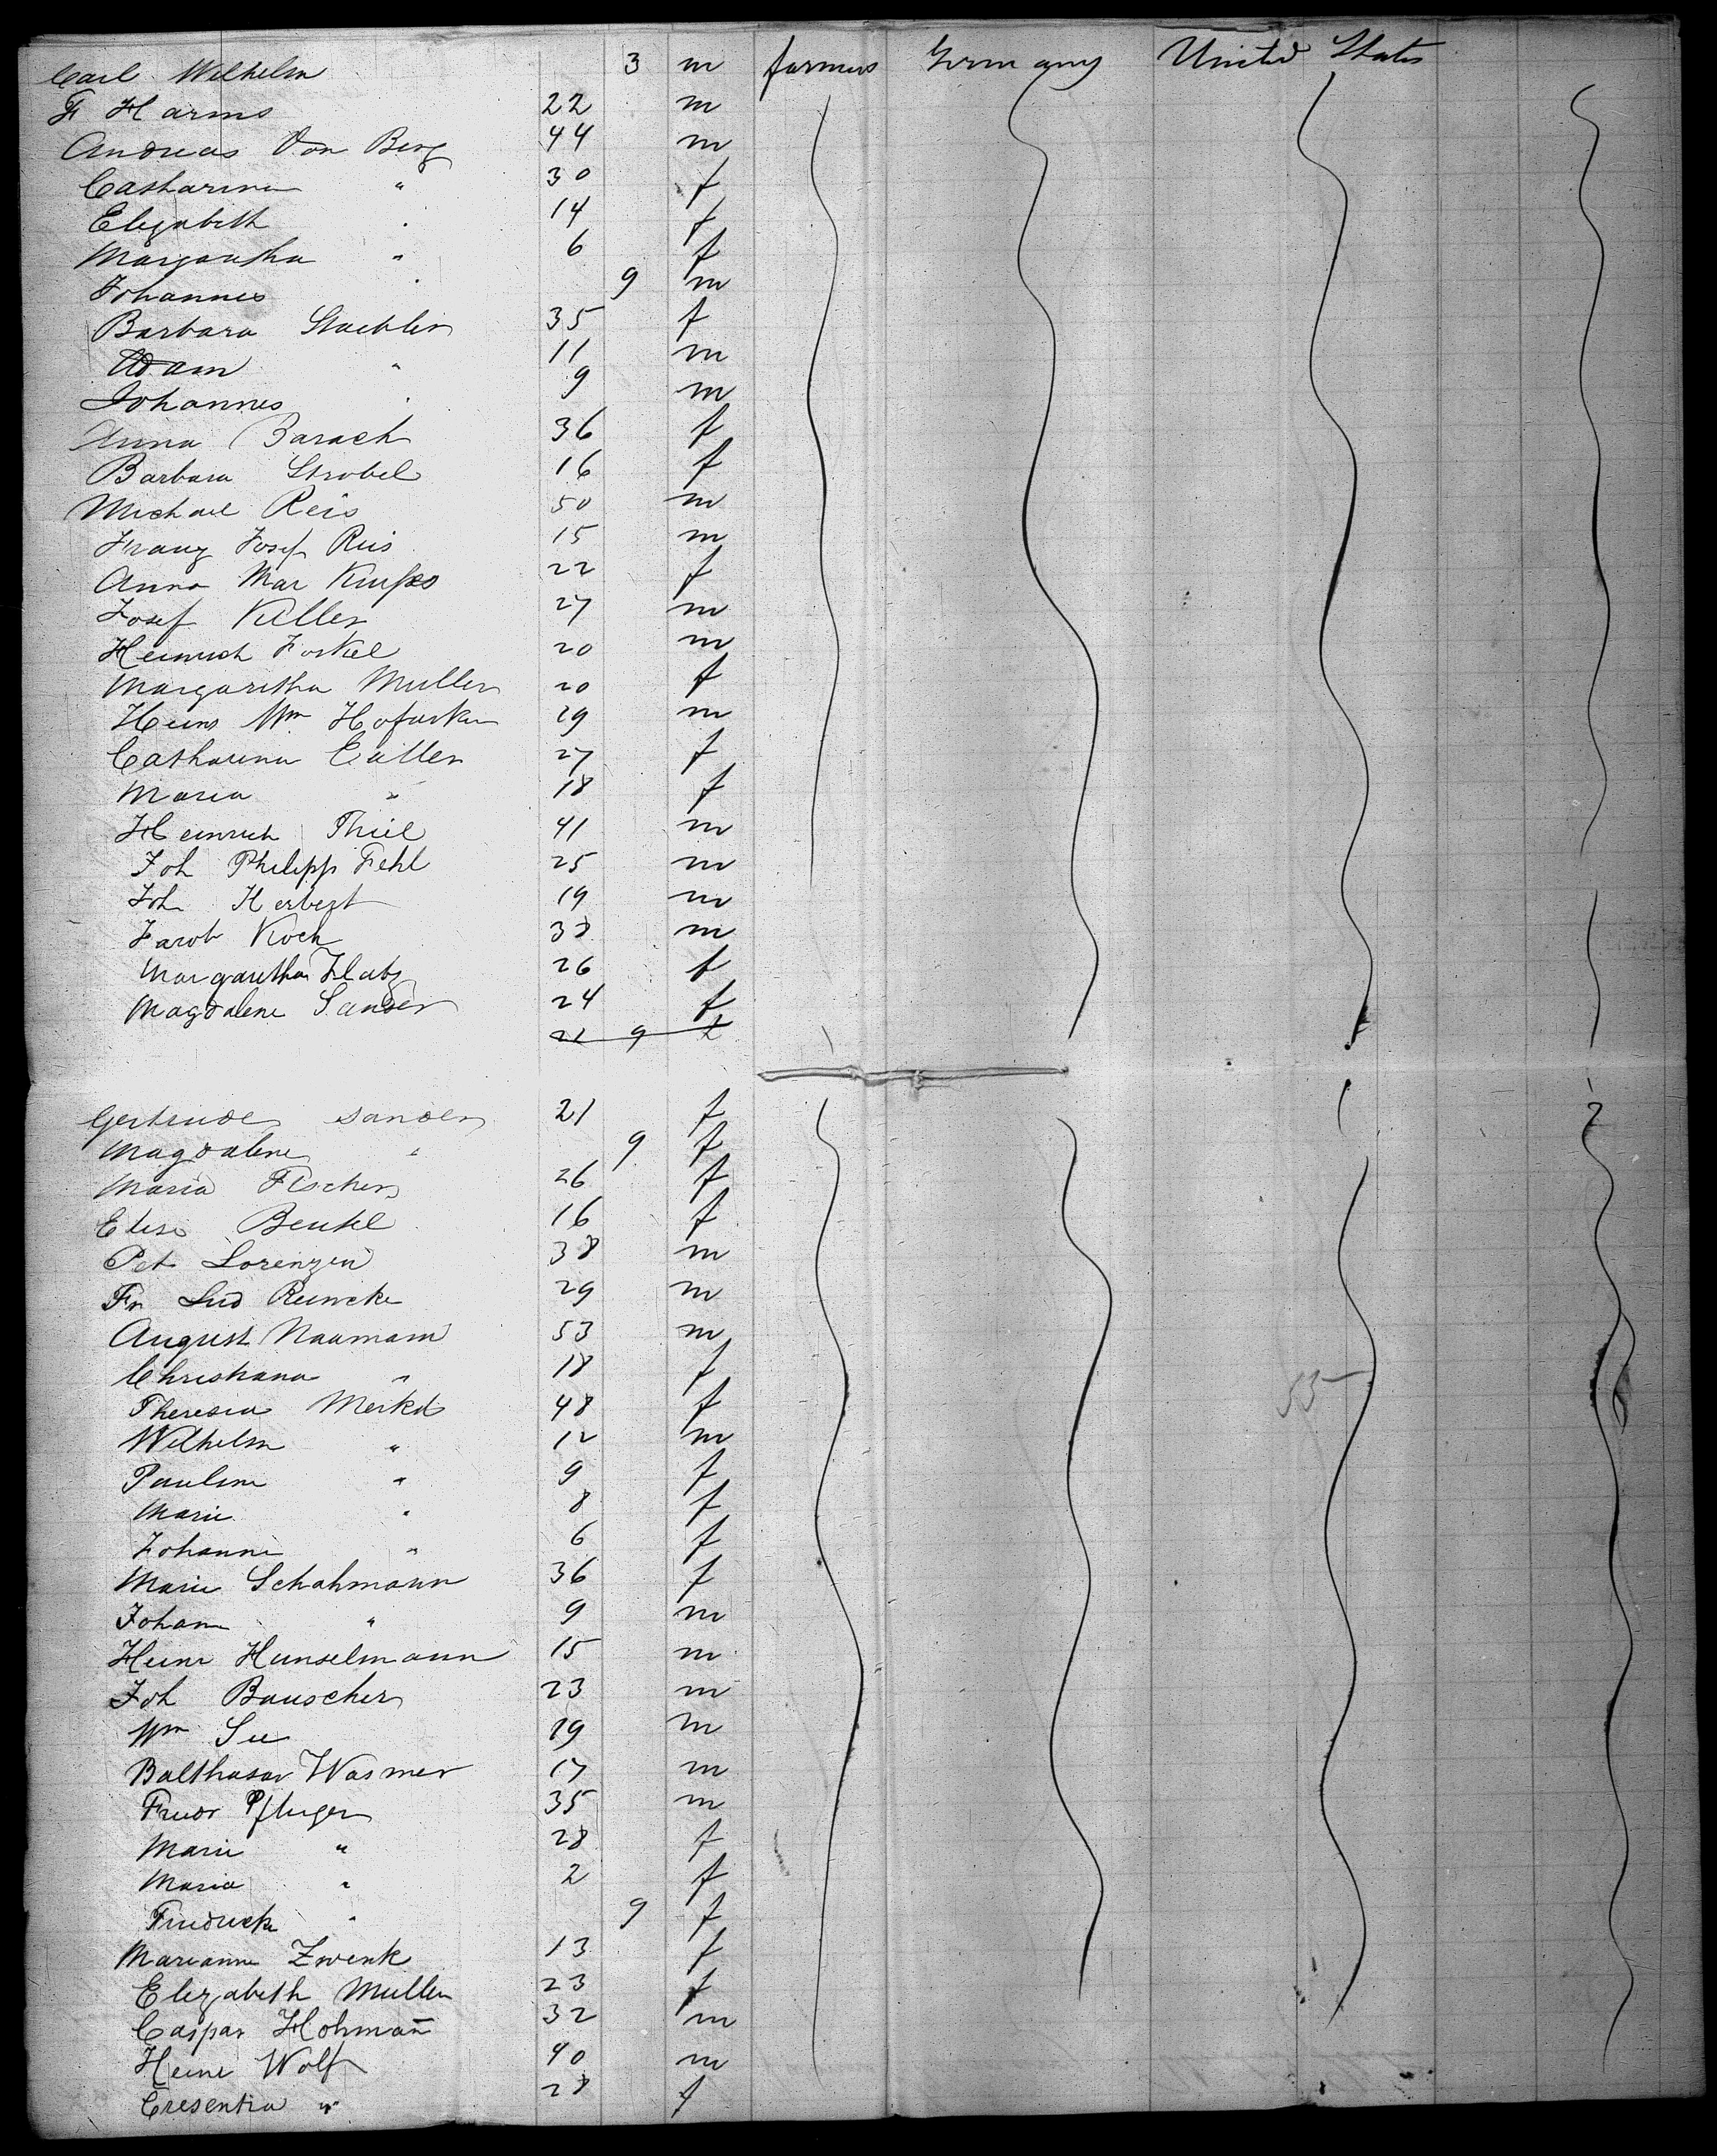 Carl Wilhelm 3 m farmers Germany United States
F Harms 22 m
Andreas Von Berg 44 m
Catharina " 30 f
Elizabeth " 14 f
Margaretha " 6 f
Johannes " 9 m
Barbara Staehlin 35 f
Adam " 11 m
Johannes " 9 m
Anna Barach 36 f
Barbara Strobel 16 f
Michael Reis 50 m
Franz Josef Reis 15 m
Anna Mar 22 f
Josef Keller 27 m
Heinrich Forkel 20 m
Margaretha Muller 20 f
Wm 19 m
Catharina Euller 27 f
Maria " 18 f
Heinrich Thiel 41 m
Joh Philipp Fehl 25 m
Joh Herbert 19 m
Jacob Koch 38 m
Margaretha Flatz 26 f
Magdalene Sander 24 f
21 9 f
Gertrude Sander 21 f
Magdalene " 9 f
Maria Fischer 26 f
Elise Beutel 16 f
Pet Lorenzen 38 m
Fr Lud Reincke 29 m
August Naumann 53 m
Christiana " 18 f
Theresia Merkel 48 f
Wilhelm " 12 m
Pauline " 9 f
Marie " 8 f
Johanne " 6 f
Marie Schahmann 36 f
Johann " 9 m
Heinr Hunselmann 15 m
Joh Bauscher 23 m
Wm See 19 m
Balthasar Wasmer 17 m
Friedr Pfluger 35 m
Marie " 28 f
Maria " 2 f
Friedricke " 9 f
Marianne Zwenk 13 f
Elizabeth Muller 23 f
Caspar Hohman̄ 32 m
Heinr Wolf 40 m
Cresentia " 28 f
55